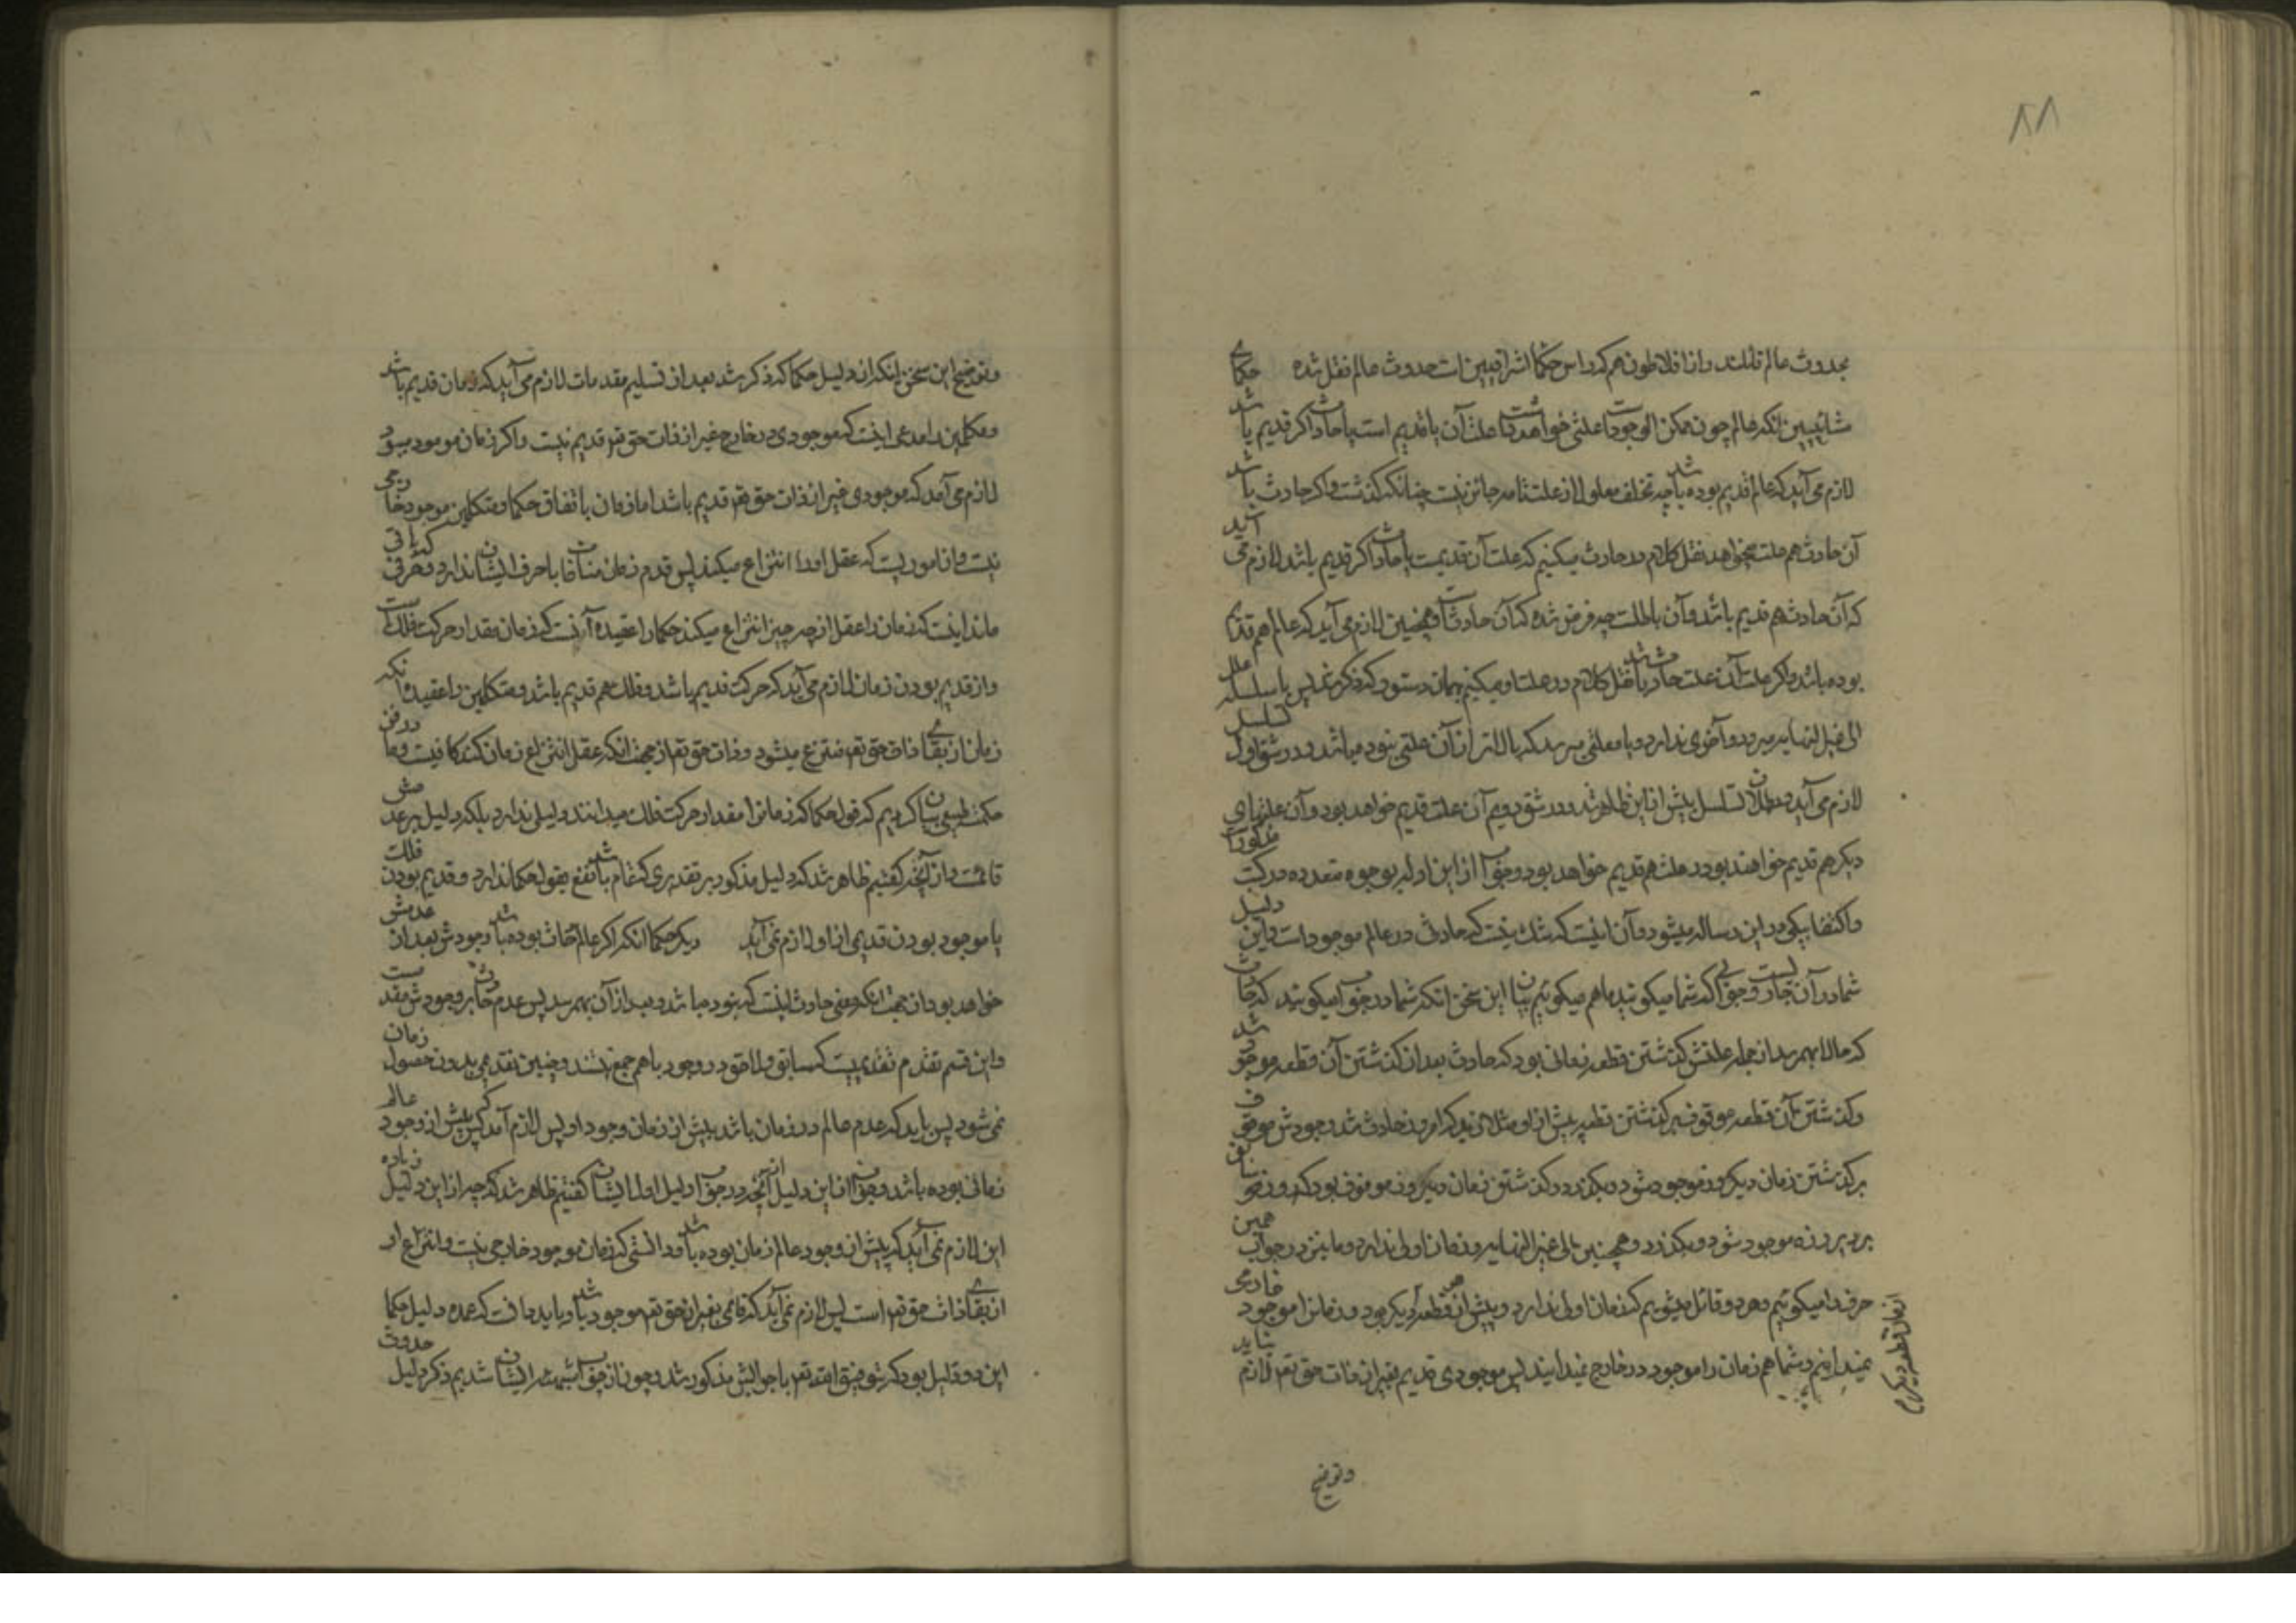 ٨٨
بحدوث عالم قائلند و از افلاطون هم که راس حکما اشراقیین است حدوث عالم نقل شده حکمای
مشائیین انکه عالم چون ممکن الوجود است علتی خواهد داشت علت آن یا قدیم است یا حادث اکر قدیم باشد
لازم می آید که عالم قدیم بوده باشد چه تخلف معلول از علت تامه جائز نیست چنانکه کذشت و اکر حادث باشد
آن حادث هم علت میخواهد نقل کلام در حادث میکنیم که علت آن قدیمست یا حادث اکر قدیم باشد لازم می آید
که آن حادث هم قدیم باشد و آن باطلست چه فرض شده که آن حادث است و همچنین لازم می آید که عالم هم قدیم
بوده باشد و اکر علت آن علت حادث باشد نقل کلام در علت او میکنیم بهمان دستور که ذکر شد پس یا سلسله علل
الی غیر النهایه میرود و آخری ندارد و یا بعلتی میرسد که بالاتر از آن علتی نبوده باشد و در شق اول تسلسل
لازم می آید و بطلان تسلسل پیش ازین ظاهر شد و در شق دویم آن علت قدیم خواهد بود و آن علتهای
دیکر هم قدیم خواهند بود و عالم هم قدیم خواهد بود و جواب از این دلیل بوجوه متعدده مذکور است
و اکتفا بیکی در این رساله میشود و آن اینست که شک نیست که حادث در عالم موجود است و این دلیل
شما در آن جاریست و جوابی که شما میکوئید ما هم میکوئیم بیان این سخن انکه شما در جواب میکوئید که حادث
که حالا بهم رسد از جمله علتش کذشتن قطعه زمانی بود که حادث بعد از کذشتن آن قطعه موجود شد
و کذشتن آن قطعه موقوف بر کذشتن قطعه پیش از او مثلا زید که امروز حادث شد وجودش موقوف
بر کذشتن زمان دیروز موجود شود و بکذرد و کذشتن زمان دیروز موقوف بود که روز سابق
بر دیروز موجود شود و بکذرد و همچنین الی غیر النهایه و زمان اولی ندارد و ما نیز در جواب همین
حرف را میکوئیم و هر دو قائل میشویم که زمان اولی ندارد و پیش از هر قطعه دیکر بود و زمانرا موجود خارجی
نمیدانیم و شما هم زمان را موجود در خارج نمیدانید پس موجودی قدیم بغیر از ذات حق تعم لازم نیاید
از زمان قطعه دیکر
و توضیح
و توضیح این سخن انکه از دلیل حکما که ذکر شد بعد از تسلیم مقدمات لازم می آید که زمان قدیم باشد
و متکلمین را مدعی اینست که موجودی در خارج غیر از ذات حق تعم قدیم نیست و اکر زمان موجود میبود
لازم می آمد که موجودی غیر از ذات حق تعم قدیم باشد اما زمان باتفاق حکما و متکلمین موجود خارجی
نیست و از اموریست که عقل او را انتزاع میکند پس قدم زمان منافات با حرف ایشان ندارد و فرقی که باقی
ماند اینست که زمان را عقل از چه چیز انتزاع میکند حکما را عقیده آنست که زمان مقدار حرکت فلک است
و از قدیم بودن زمان لازم می آید که حرکت قدیم باشد و فلک هم قدیم باشد و متکلمین را عقیده انکه
زمان از بقای ذات حق تعم منتزع میشود و ذات حق تعم از جهت انکه عقل انتزاع زمان کند کافیست و ما در فن
حکمت طبیعی بیان کردیم که قول حکما که زمانرا مقدار حرکت فلک میدانند دلیلی ندارد بلکه دلیل بر عدمش
قائمست و از آنچه کفتیم ظاهر شد که دلیل مذکور بر تقدیری که تمام باشد نفع بقول حکما ندارد و قدیم بودن فلک
یا موجود بودن قدیمی از او لازم نمی آید دیکر حکما انکه اکر عالم حادث بوده باشد وجودش بعد از عدمش
خواهد بود از جهت انکه معنی حادث اینست که نبوده باشد و بعد از آن بهم رسد پس عدم حادث بر وجودش مقدمست
و این قسم تقدم تقدمیست که سابق و لاحق در وجود با هم جمع نشدند و چنین تقدمی بدون حصول زمان
نمی شود پس باید که عدم عالم در زمان باشد پیش از زمان وجود او پس لازم آمد که پیش از وجود عالم
زمانی بوده باشد و جواب از این دلیل از آنچه در جواب دلیل اول ایشان کفتیم ظاهر شد که چه از این دلیل زیاده
این لازم نمی آید که پیش از وجود عالم زمان بوده باشد و دانستی که زمان موجود خارجی نیست و انتزاع او
از بقای ذات حق تعم است پس لازم نمی آید که قدیمی بغیر از حق تعم موجود باشد و باید دانست که عمده دلیل حکما
این دو دلیل بود که بتوفیق الله تعم با جوابش مذکور شد و چون از جواب شبهه ایشان شدیم ذکر دلیل حدوث